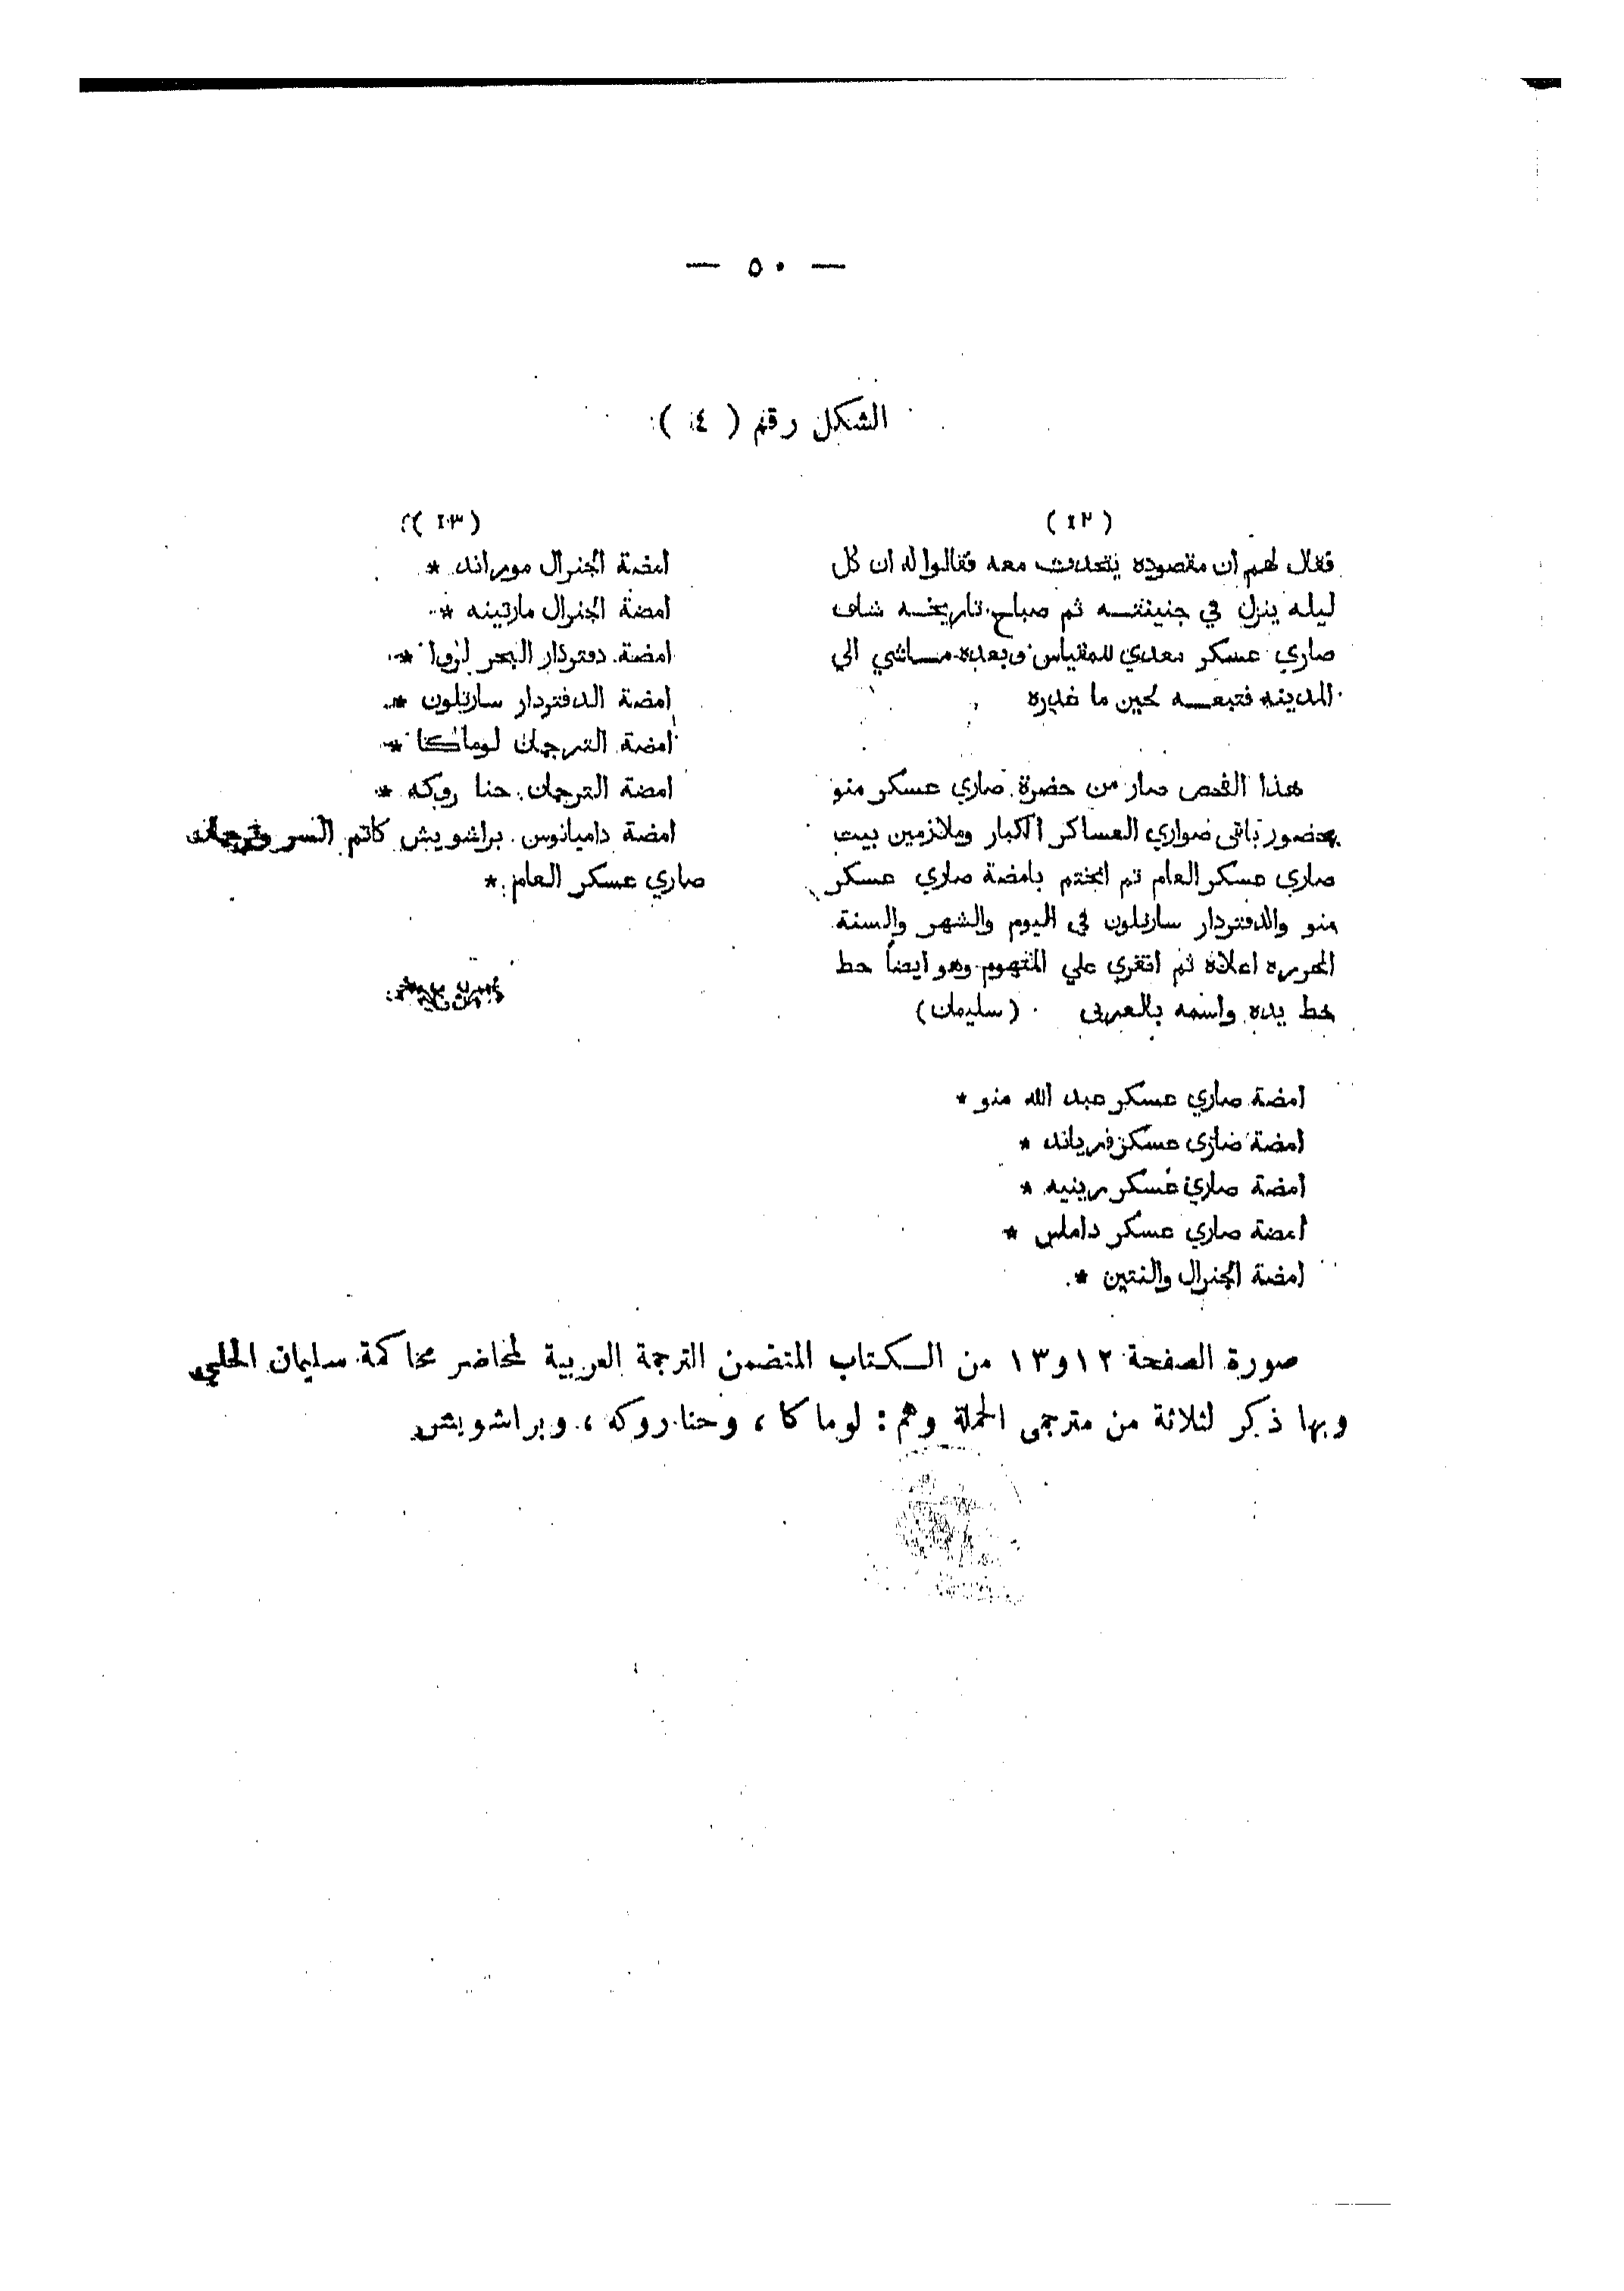 — ٥٠ —
الشكل رقم ( ٤ )
( ١٢ )
فقال لهم ان مقصوده يتحدث معه فقالوا له ان كل
ليله ينزل في جنينتـــه ثم صباح تاريخـــه شاف
صاري عسكر معدي للمقياس وبعده مـــاشي الي
المدينه فتبعـــه لحين ما غدره
هذا الفحص صار من حضرة صاري عسكر منو
بحضور باقى صواري العساكر الكبار وملازمين بيت
صاري عسكر العام ثم انختم بامضة صاري عسكر
منو والدفتردار سارتلون في اليوم والشهر والسنة
المحرره اعلاه ثم انقري علي المتهوم وهو ايضاً حط
خط يده واسمه بالعربى (سليمان)
امضة صاري عسكر عبد الله منو *
امضة صاري عسكر فرياند *
امضة صاري عسكر رينيه *
امضة صاري عسكر داماس *
امضة الجنرال والنتين *
( ١٣ )
امضة الجنرال موراند *
امضة الجنرال مارتينه *
امضة دفتردار البحر لروا *
امضة الدفتردار سارتلون *
امضة الترجمان لوماكا *
امضة الترجمان حنا روكه *
امضة داميانوس براشويش كاتم السر وترجمان
صاري عسكر العام *
صورة الصفحة ١٢ و ١٣ من الـكتاب المتضمن الترجمة العربية لمحاضر محاكمة سليمان الحلبي
وبها ذكر لثلاثة من مترجمى الحملة وهم : لوماكا ، وحنا روكه ، وبراشويش